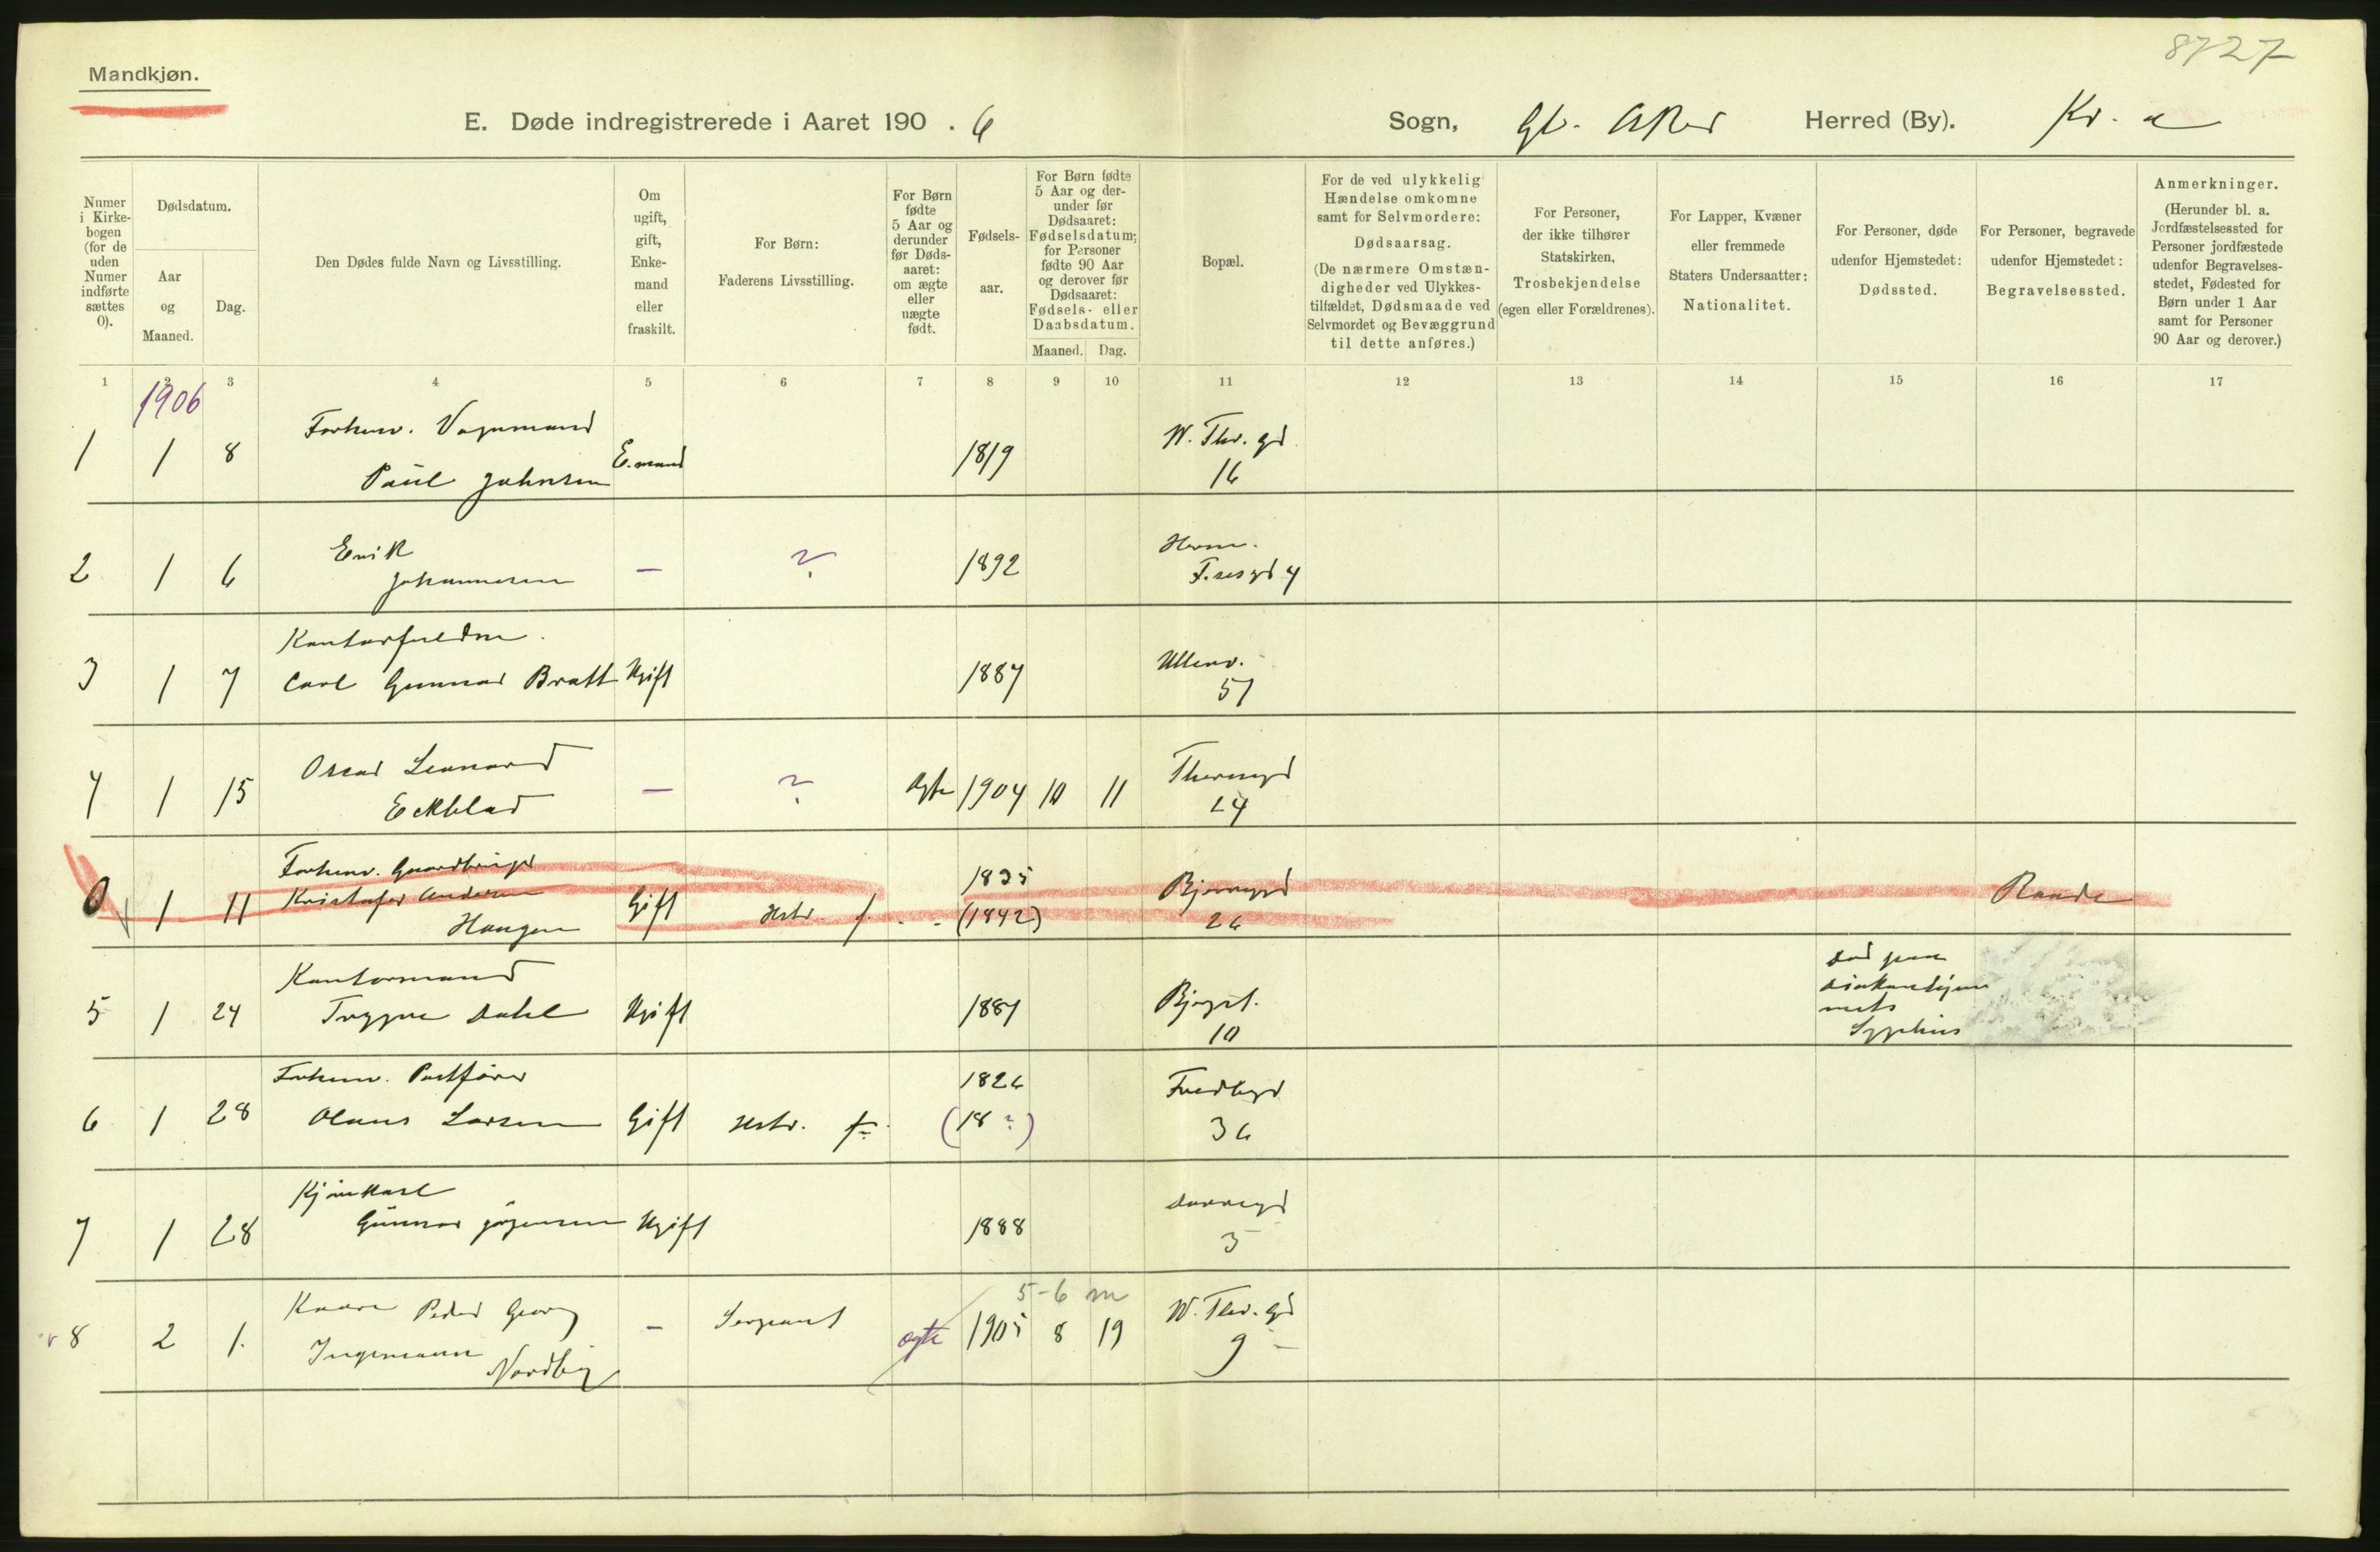 8727
Mandkjøn.
E. Døde indregistrerede i Aaret 190 . 6 Sogn, Gl. Aker Herred (By). Kr. a
Numer i Kirkebogen (for de uden Numer indførte sættes 0).
Dødsdatum.
Aar og Maaned.
Dag.
Den Dødes fulde Navn og Livsstilling.
Om ugift, gift, Enkemand eller fraskilt.
For Børn:
Faderens Livsstilling.
For Børn fødte 5 Aar og derunder før Dødsaaret: om ægte eller uægte født.
Fødselsaar.
For Børn fødte 5 Aar og derunder før Dødsaaret: Fødselsdatum; for Personer fødte 90 Aar og derover før Dødsaaret: Fødsels- eller Daabsdatum.
Maaned. Dag.
Bopæl.
For de ved ulykkelig Hændelse omkomne samt for Selvmordere:
Dødsaarsag.
(De nærmere Omstændigheder ved Ulykkestilfældet, Dødsmaade ved Selvmordet og Bevæggrund til dette anføres.)
For Personer, der ikke tilhører Statskirken,
Trosbekjendelse
(egen eller Forældrenes).
For Lapper, Kvæner eller fremmede Staters Undersaatter:
Nationalitet.
For Personer, døde udenfor Hjemstedet:
Dødssted.
For Personer, begravede udenfor Hjemstedet:
Begravelsessted.
Anmerkninger.
(Herunder bl. a. Jordfæstelsessted for Personer jordfæstede udenfor Begravelsesstedet, Fødested for Børn under 1 Aar samt for Personer 90 Aar og derover.)
1 2 3 4 5 6 7 8 9 10 11 12 13 14 15 16 17
1906
Forhenv. Vognmand
1 1 8 Paul Johnsen E.mand 1819 W. Thr. gd
16
2 1 6 Erik
Johannesen — ? 1892 Herm.
F.sesgd 4
Kontorfuldm.
3 1 7 Carl Gunnar Bratt Ugift 1887 Ullenv.
57
4 1 15 Oscar Leonard
Eckblad — ? Ægte 1904 10 11 Therесgd
24
Forhenv. Gaardbruger
0 1 11 Kristofer Andersen
Haugen Gift Hstr. f. 1835
(1842) Bjerregd
26 Raade
Kontormand
5 1 24 Trygve Dahl Ugift 1887 Bjergst.
10 Død paa
Diakonhjem
mets
Sygehus
Forhenv. Postfører
6 1 28 Olaus Larsen Gift Hstr. f. 1826
(18 ?) Fredbgd
36
7 1 28 Gunnar Jørgensen Ugift 1888 Darresgd
3
5-6 m
8 2 1. Kaare Peder Georg
Ingemann
Nordby - Sergeant ægte 1905 8 19 W. Thr. gd
9